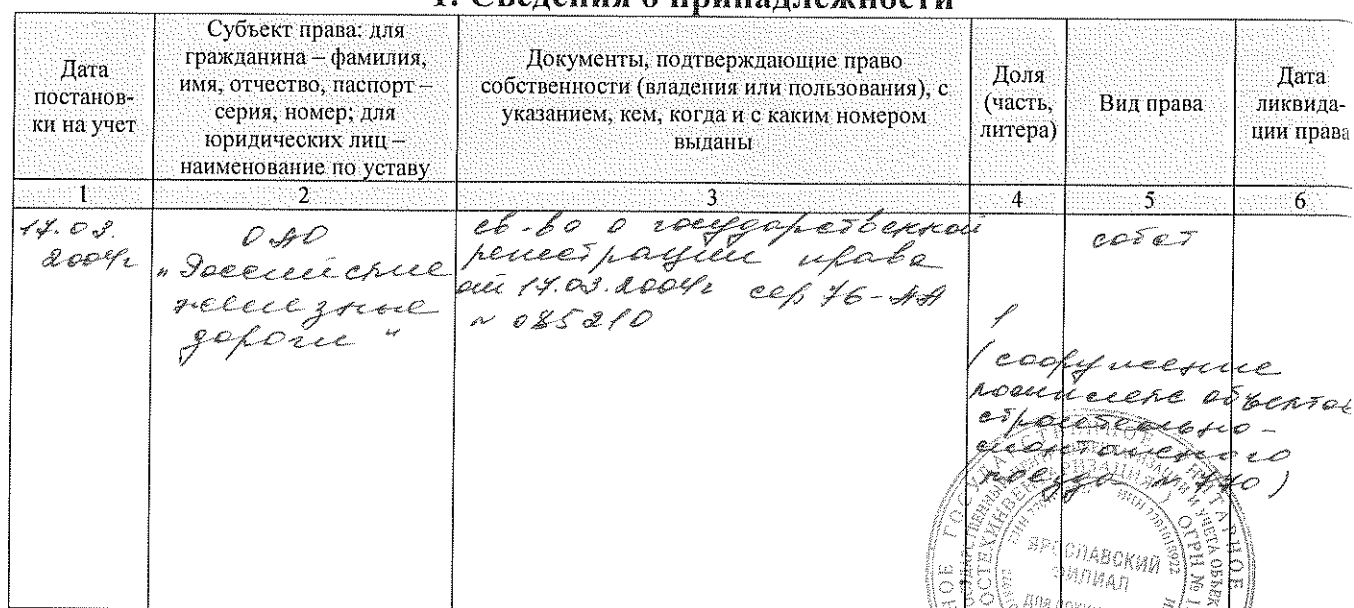 1. Сведения о принадлежности
Дата
постанов-
ки на учет
Субъект права: для
гражданина – фамилия,
имя, отчество, паспорт –
серия, номер; для
юридических лиц –
наименование по уставу
Документы, подтверждающие право
собственности (владения или пользования), с
указанием, кем, когда и с каким номером
выданы
Доля
(часть,
литера)
Вид права
Дата
ликвида-
ции права
1 2 3 4 5 6
17.03.
2004г
ОАО
"Российские
железные
дороги"
св-во о государственной
регистрации права
от 17.03.2004г сер 76-АА
№ 085210
1
(сооружение
комплекс объектов
строительно-
монтажного
поезда № )
собст
ЯРОСЛАВСКИЙ
ФИЛИАЛ